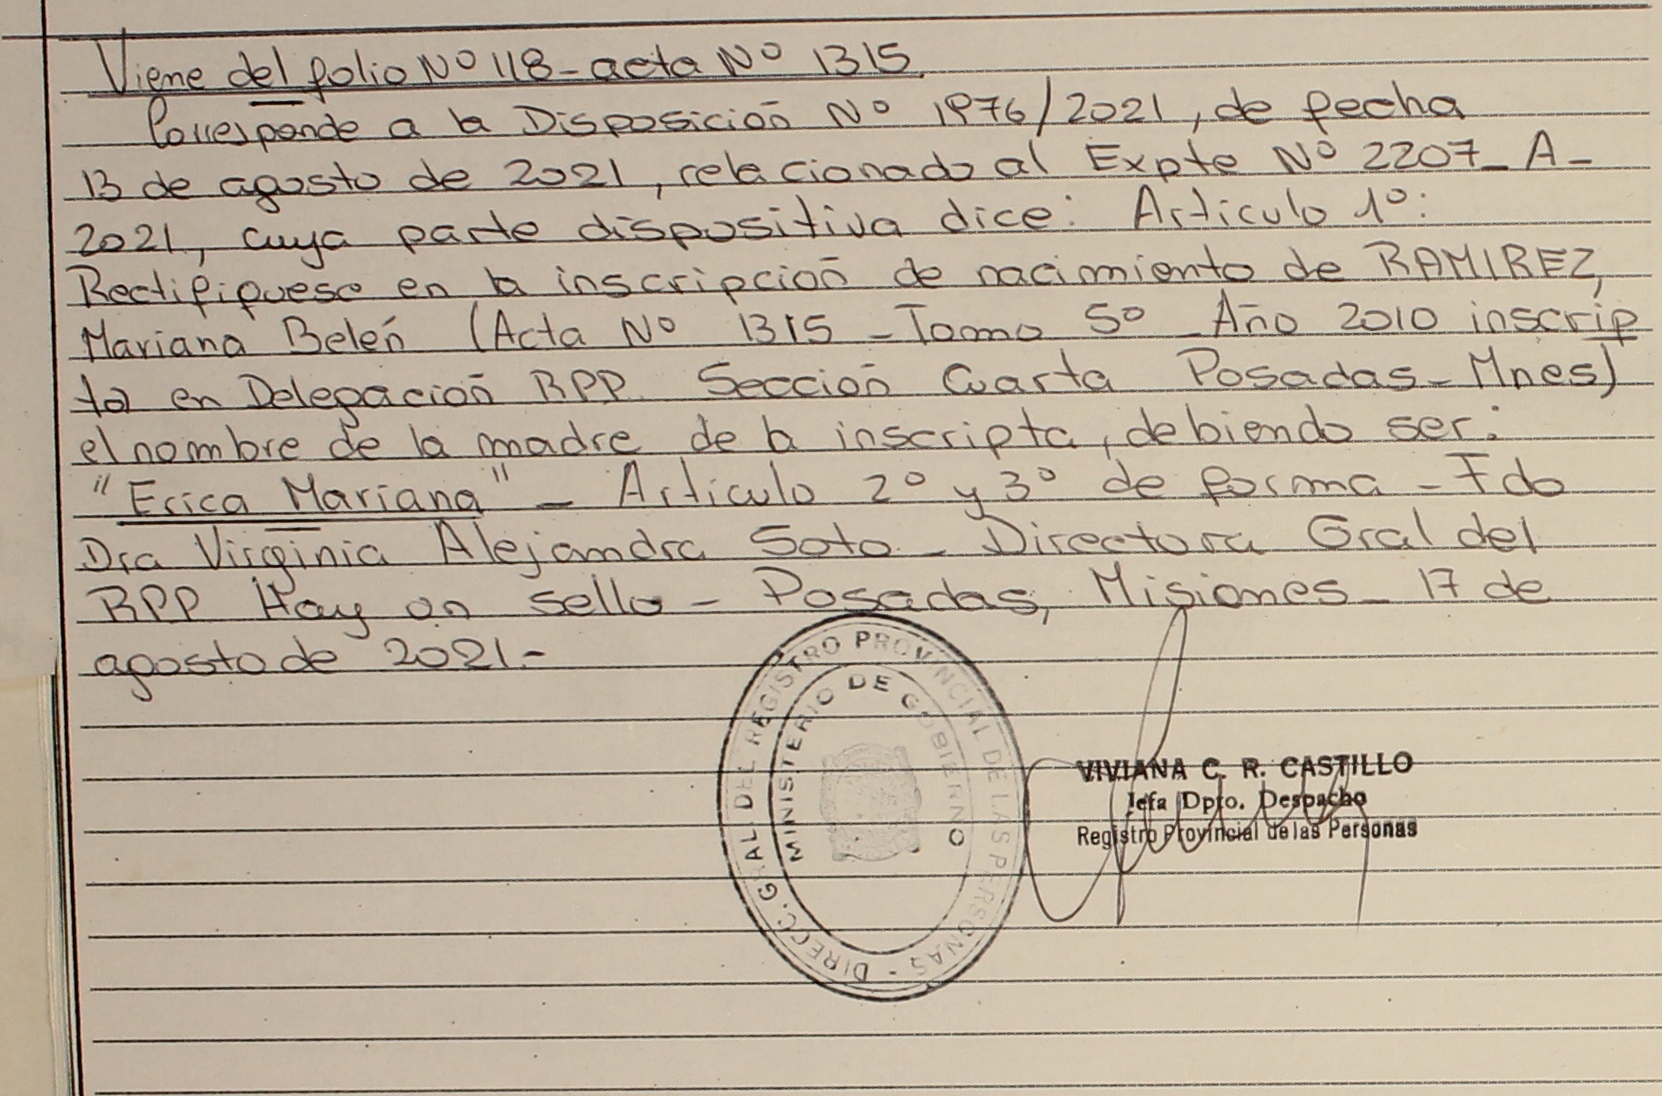 Viene del folio Nº 118 - acta Nº 1315
Corresponde a la Disposición Nº 1976/2021, de fecha
13 de agosto de 2021, relacionado al Expte Nº 2207_ A_
2021, cuya parte dispositiva dice: Articulo 1º:
Rectifiquese en la inscripción de nacimiento de RAMIREZ,
Mariana Belén (Acta Nº 1315 _ Tomo 5º _ Año 2010 inscrip
ta en Delegación RPP. Sección Cuarta Posadas _ Mnes)
el nombre de la madre de la inscripta, debiendo ser:
"Erica Mariana" _ Articulo 2º y 3º de forma - Fdo
Dra Virginia Alejandra Soto _ Directora Gral del
RPP Hay un sello - Posadas, Misiones _ 17 de
agosto de 2021.-
DIRECC. GRAL. DEL REGISTRO PROVINCIAL DE LAS PERSONAS -
MINISTERIO DE GOBIERNO
VIVIANA C. R. CASTILLO
Jefa Dpto. Despacho
Registro Provincial de las Personas